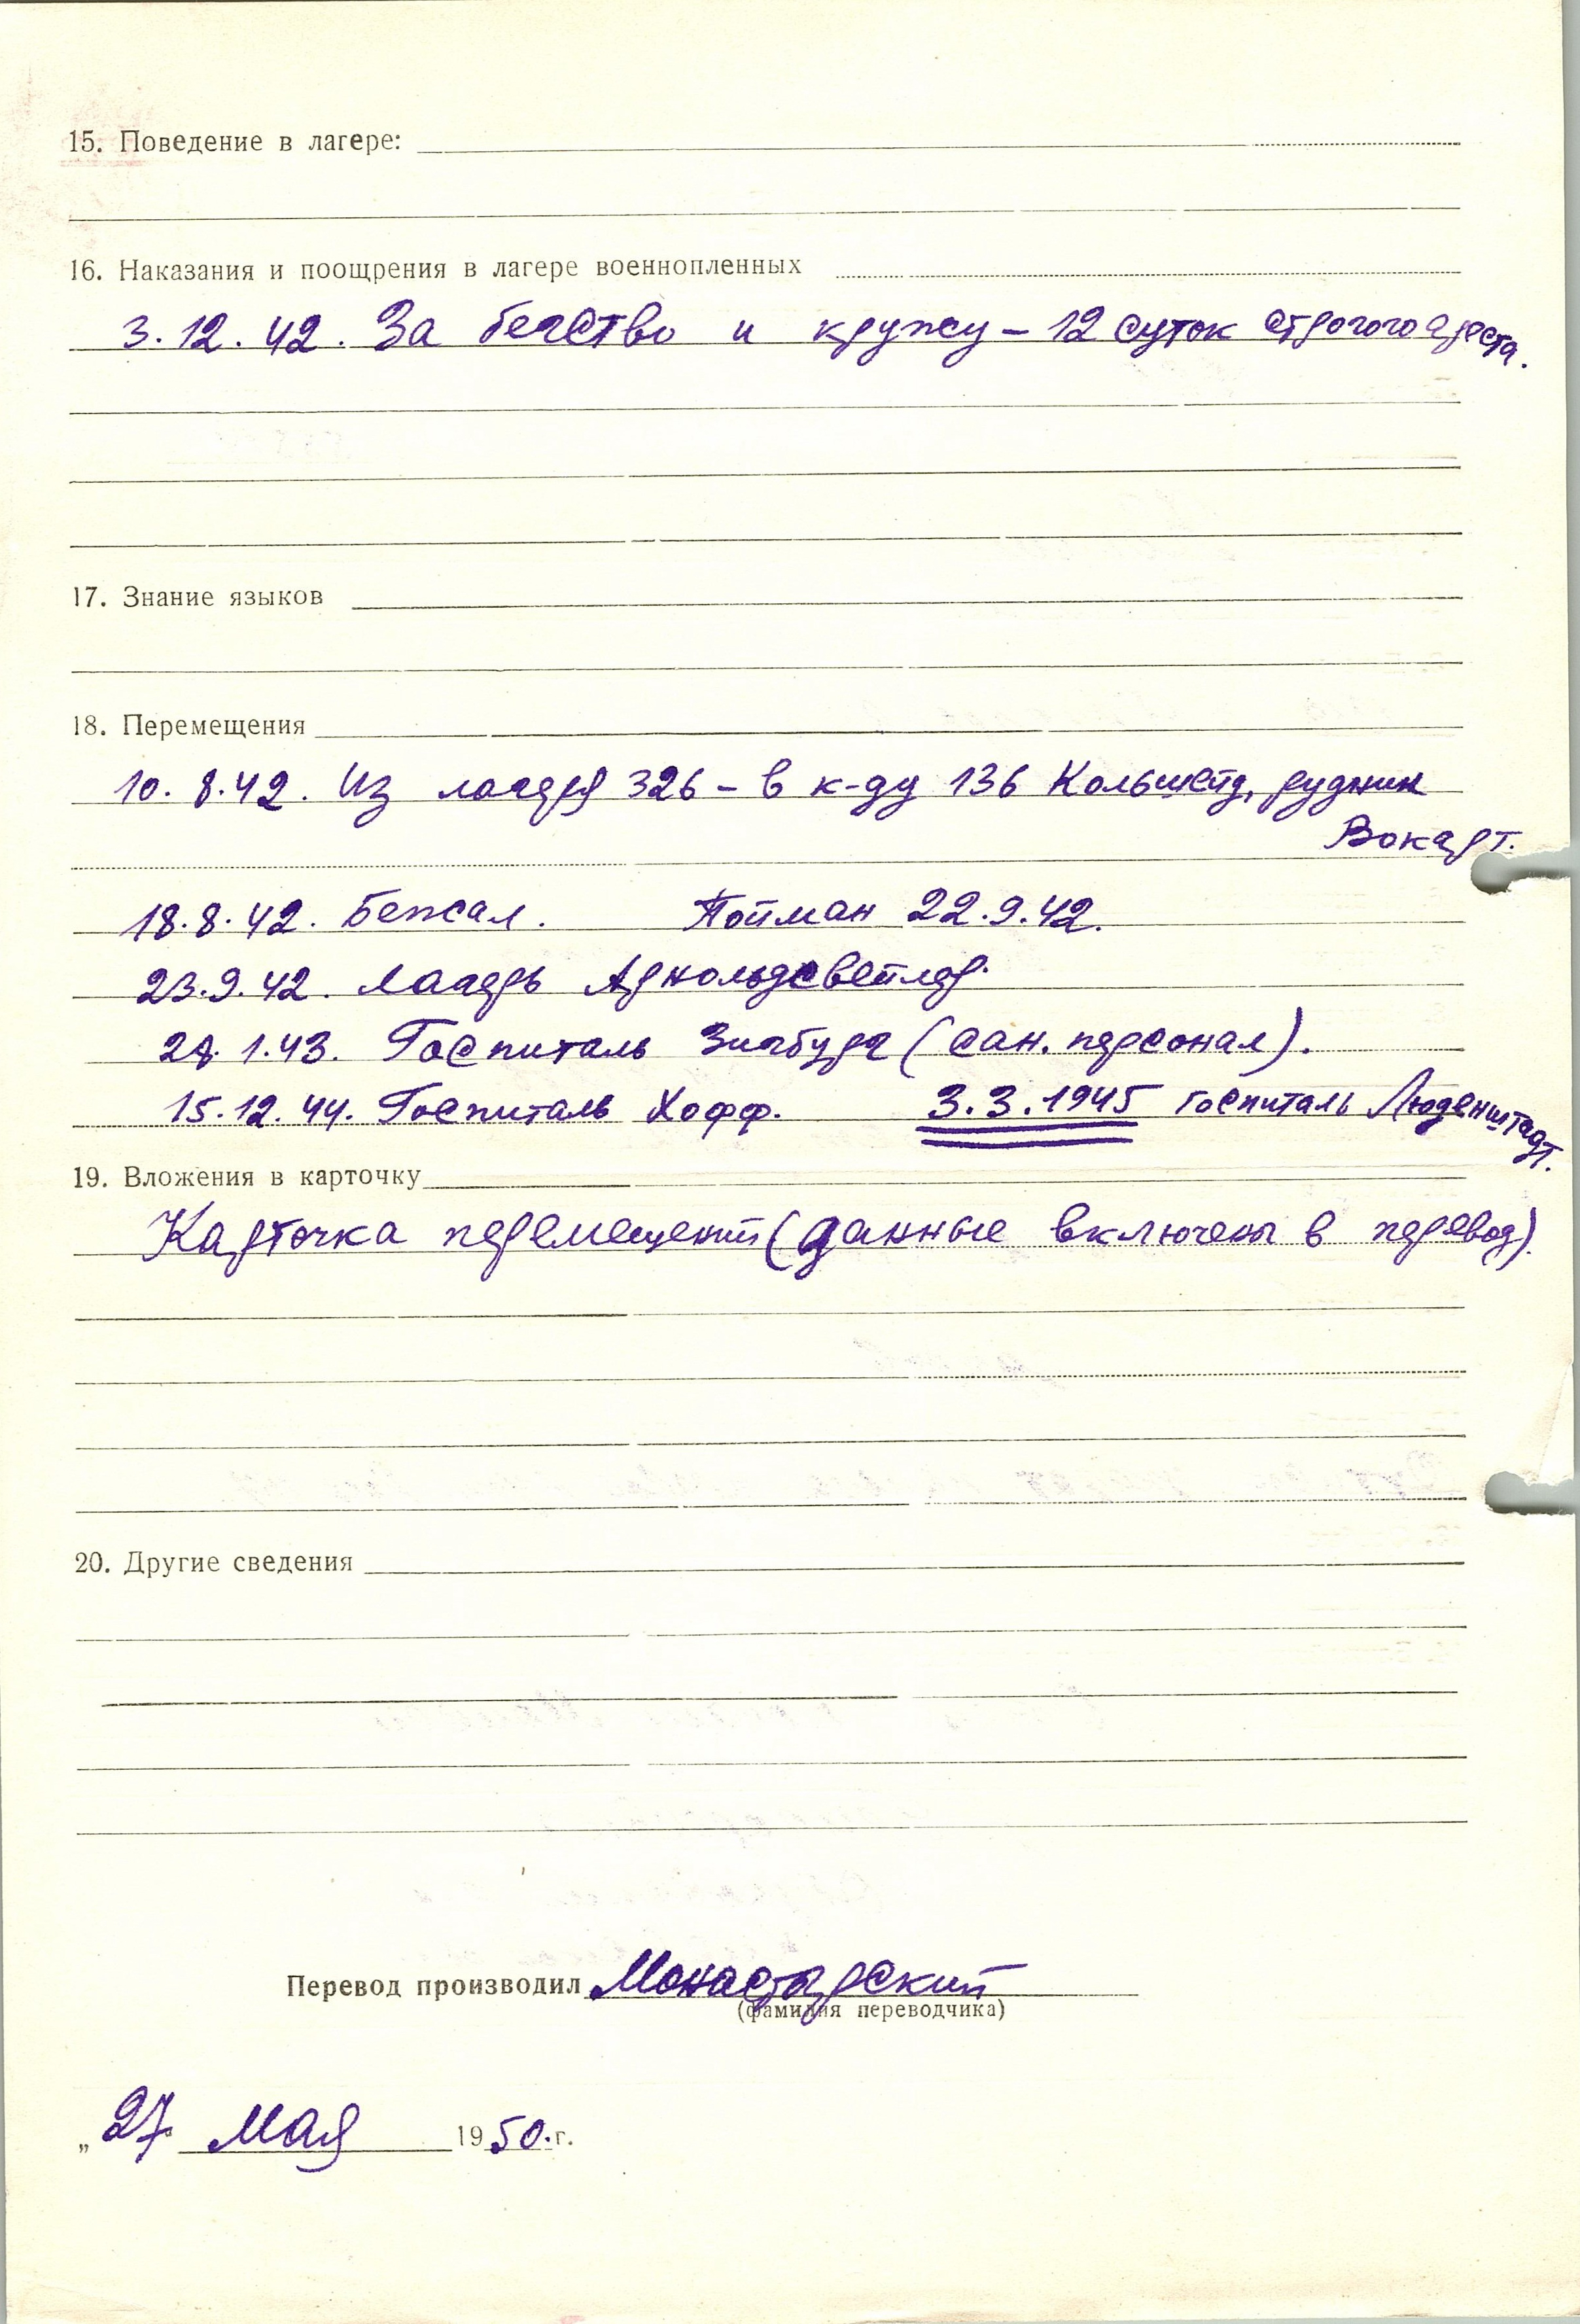 15. Поведение в лагере:
16. Наказания и поощрения в лагере военнопленных
3.12.42. За бегство и кражу – 12 суток строгого ареста.
17. Знание языков
18. Перемещения
10.8.42. Из лагеря 326 – в к-ду 136 Кольшейд, рудник
Вокарт.
18.8.42. Бежал. Пойман 22.9.42.
23.9.42. Лагерь Арнольдсвейлер.
28.1.43. Госпиталь Зигбург (сан. персонал).
15.12.44. Госпиталь Хофф. 3.3.1945 госпиталь Люденштадт.
19. Вложения в карточку
Карточка перемещений (данные включены в перевод).
20. Другие сведения
Перевод производил Монастырский
(фамилия переводчика)
„27 Мая 1950.г.